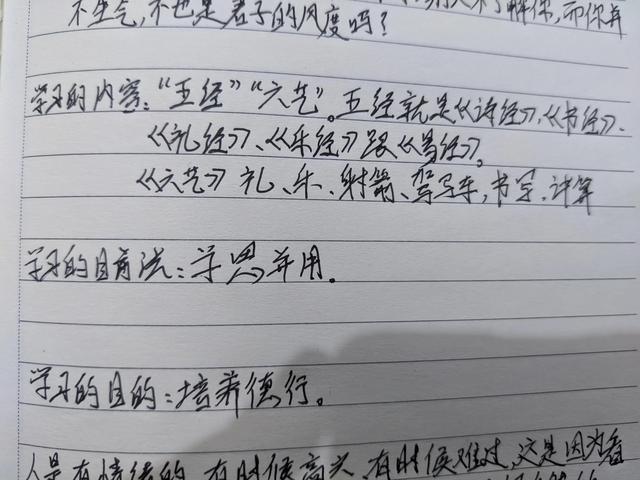 不生气,不也是君子的风度吗?
别人不了解你,而你并
学习的内容:“五经”“六艺”。五经就是《诗经》,《书经》、
《礼经》、《乐经》跟《易经》。
《六艺》礼、乐、射箭、驾写车,书写、计算
学习的目育法:学思并用。
学习的目的:培养德行。
人是有情绪的,有时候高兴,有时候难过,这是因为看